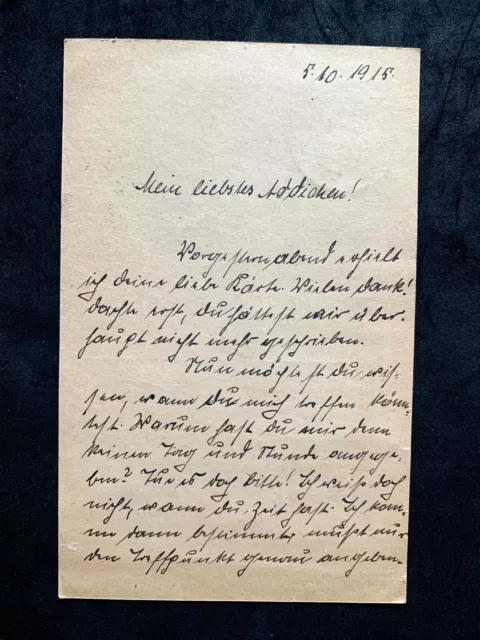 5.10.1915.
Mein liebstes Addichen!
Vorgestern abend erhielt
ich deine liebe Karte. Vielen Dank!
dachte erst, du hättest mir über-
haupt nicht mehr geschrieben.
Nun möchtest du wis-
sen, wann du mich treffen könn-
test. Warum hast du mir denn
keinen Tag und Stunde angege-
ben? Tue es doch bitte! Ich weiß doch
nicht, wann du Zeit hast. Ich kom-
me dann bestimmt, mußt nur
den Treffpunkt genau angeben.